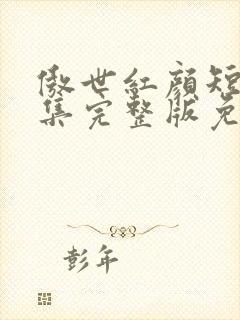 傲世紅顏短
集完整版免
彭年